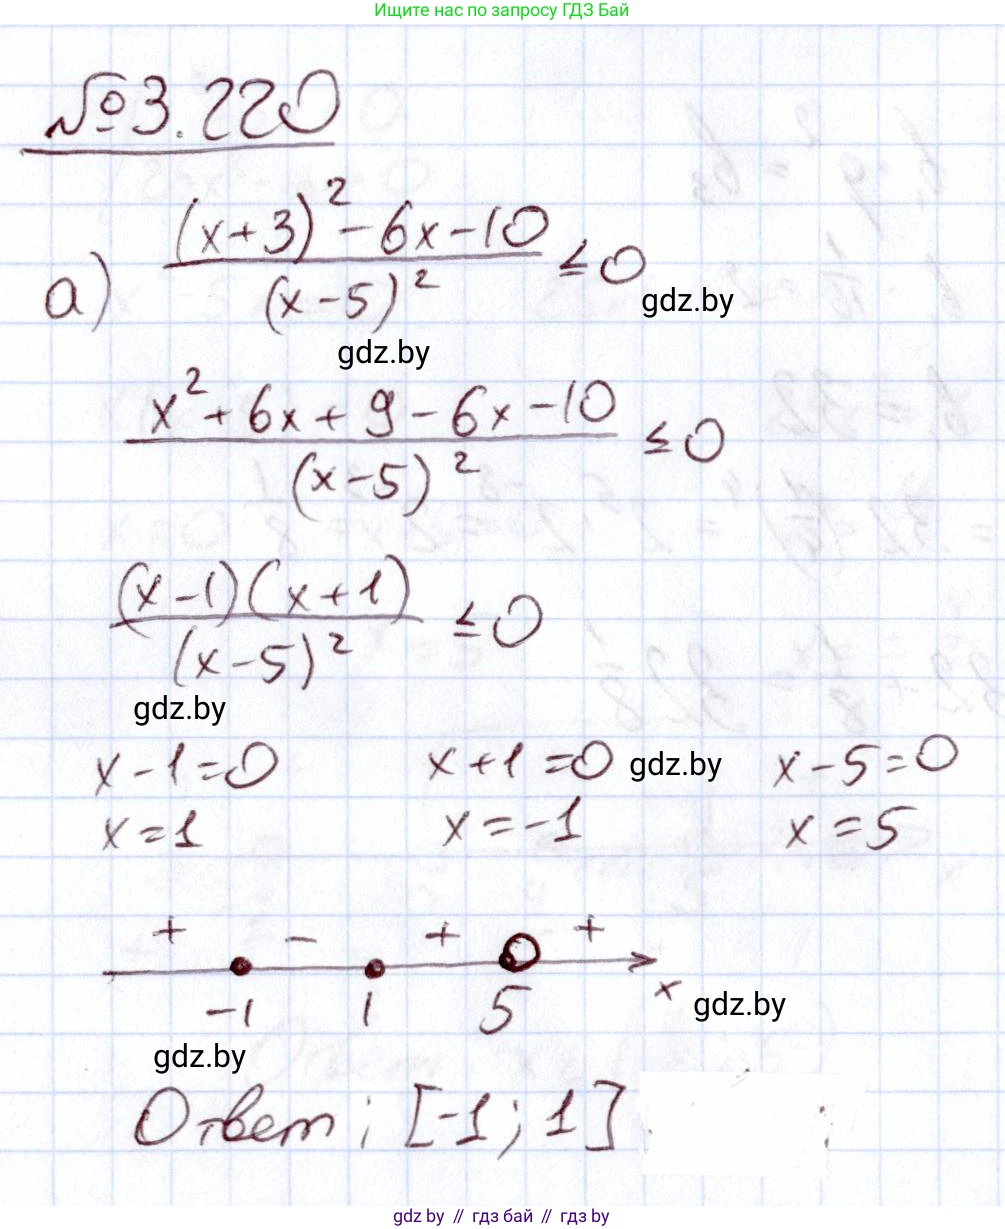 Ищите нас по запросу ГДЗ Бай
№3.220
а) ((x+3)² - 6x - 10)/(x-5)² ≤ 0
gdz.by
gdz.by
(x² + 6x + 9 - 6x - 10)/(x-5)² ≤ 0
((x-1)(x+1))/(x-5)² ≤ 0
gdz.by
x - 1 = 0 x + 1 = 0 gdz.by x - 5 = 0
x = 1 x = -1 x = 5
+ - + +
-1 1 5 x gdz.by
gdz.by
Ответ: [-1; 1]
gdz by // гдз бай // гдз by